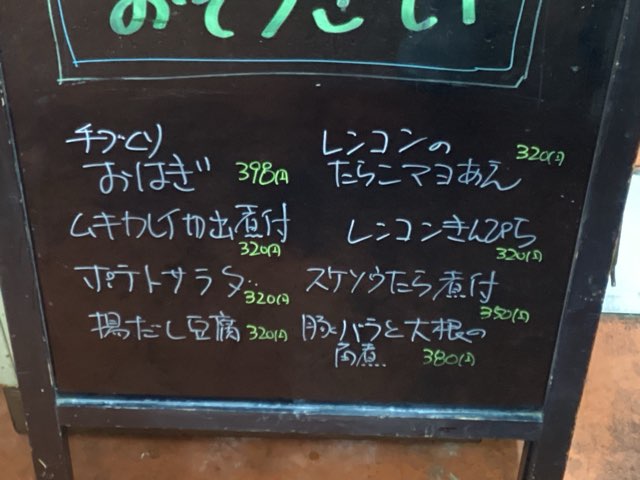 おそうざい
手づくり
おはぎ 398円
ムキカレイ切出煮付
320円
ポテトサラダ
320円
揚だし豆腐 320円
レンコンの
たらこマヨあえ 320円
レンコンきんぴら
320円
スケソウたら煮付
350円
豚バラと大根の
角煮 380円